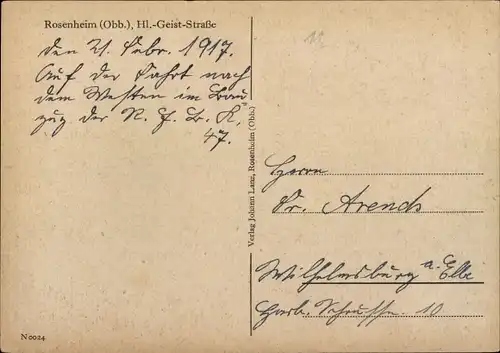 Rosenheim (Obb.), Hl.-Geist-Straße
den 21. Febr. 1917.
Auf der Fahrt nach
dem Westen im Bau
zug der R. E. B. K.
47.
Verlag Johann Lanz, Rosenheim (Obb.)
Herrn
Fr. Arends
Wilhelmsburg a. Elbe
Harb. 10
N0024